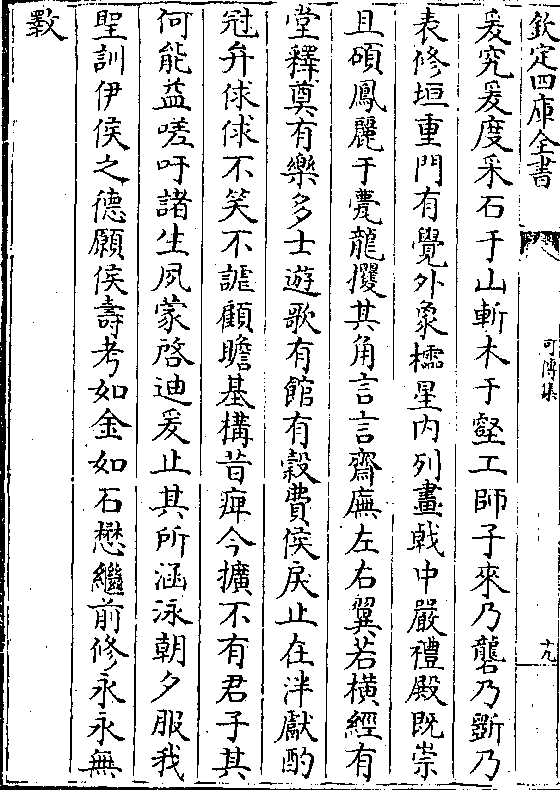 欽定四庫全書
可傳集
十九
爰究爰度采石于山斬木于壑工師子來乃礱乃斵乃
表修垣重門有覺外象櫺星内列畫㦸中嚴禮殿既崇
且碩鳳麗于甍龍攫其角言言齋廡左右翼若横經有
堂釋奠有樂多士遊歌有館有穀費侯戾止在泮獻酌
冠弁俅俅不笑不謔顧瞻基構昔痺今擴不有君子其
何能益嗟吁諸生夙蒙啓迪爰止其所涵泳朝夕服我
聖訓伊侯之德願侯壽考如金如石懋繼前修永永無
斁